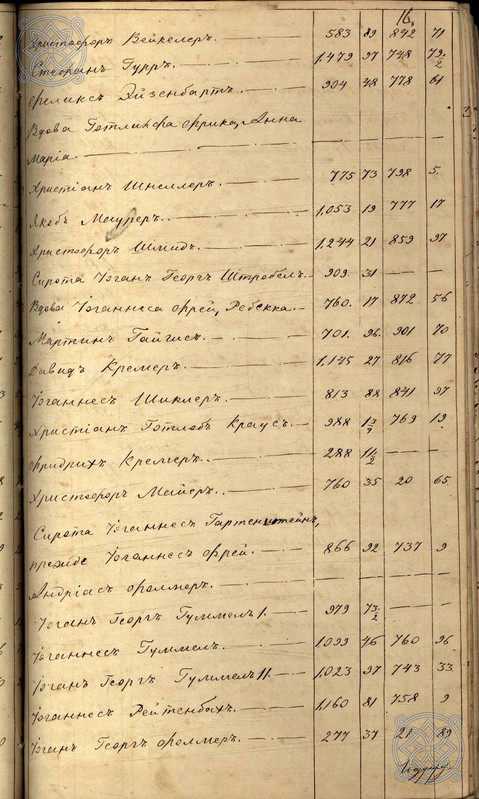 16.
Христофоръ Вейкелеръ. — 583 89 842 71
Стефанъ Гурръ. — 1,479 97 748 79/2
Феликсъ Эйзенбартъ. — 904 48 778 61
Вдова Готлифа Фрика, Анна
Марія. — — — — —
Христіанъ Шнеллеръ. — 775 73 798 5.
Якобъ Мауреръ. — 1,053 19 777 17
Христофоръ Шмидъ. — 1,244 21 859 97
Сирота Іоганъ Георгъ Штробель. — 909 31 — —
Вдова Іоганнеса Фрей, Ребекка. — 760. 17 872 56
Мартинъ Гайгисъ. — 701. 96. 901 70
Давидъ Кремеръ. — 1,145 27 816 77
Іоганнесъ Шиклеръ. — 813 88 841 97
Христіанъ Готлобъ Краусъ. — 988 769 19
Фридрихъ Кремеръ. — 288 — —
Христофоръ Майеръ. — 760 35 20 65
Сирота Іоганнесъ Гартенштейнъ,
прежде Іоганнесъ Фрей. — 866 92 737 9
Андріасъ Фоллмеръ. — — — — —
Іоганъ Георгъ Гуммель I. — 979 73/2 — —
Іоганнесъ Гуммель. — 1,099 46 760 96
Іоганъ Георгъ Гуммель II. — 1,023 97 743 33
Іоганнесъ Рейтенбахъ. — 1,160 81 758 9
Іоганъ Георгъ Фоллмеръ. — 277 37 21 89